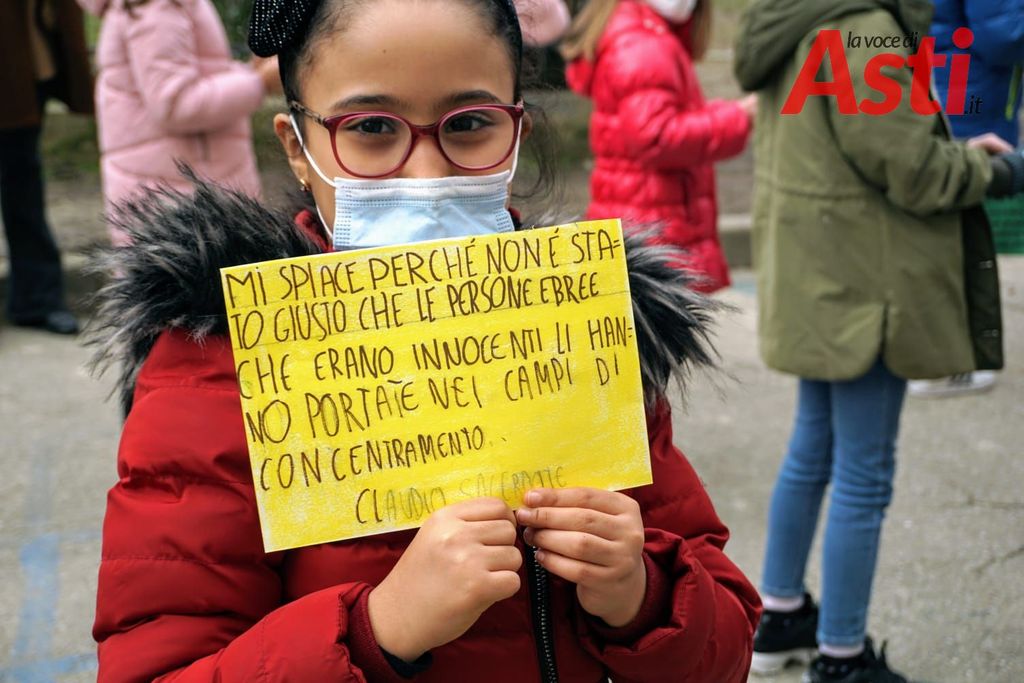 la voce di
Asti.it
MI SPIACE PERCHÉ NON É STA-
TO GIUSTO CHE LE PERSONE EBREE
CHE ERANO INNOCENTI LI HAN-
NO PORTATE NEI CAMPI DI
CONCENTRAMENTO..
CLAUDIO SACERDOTE